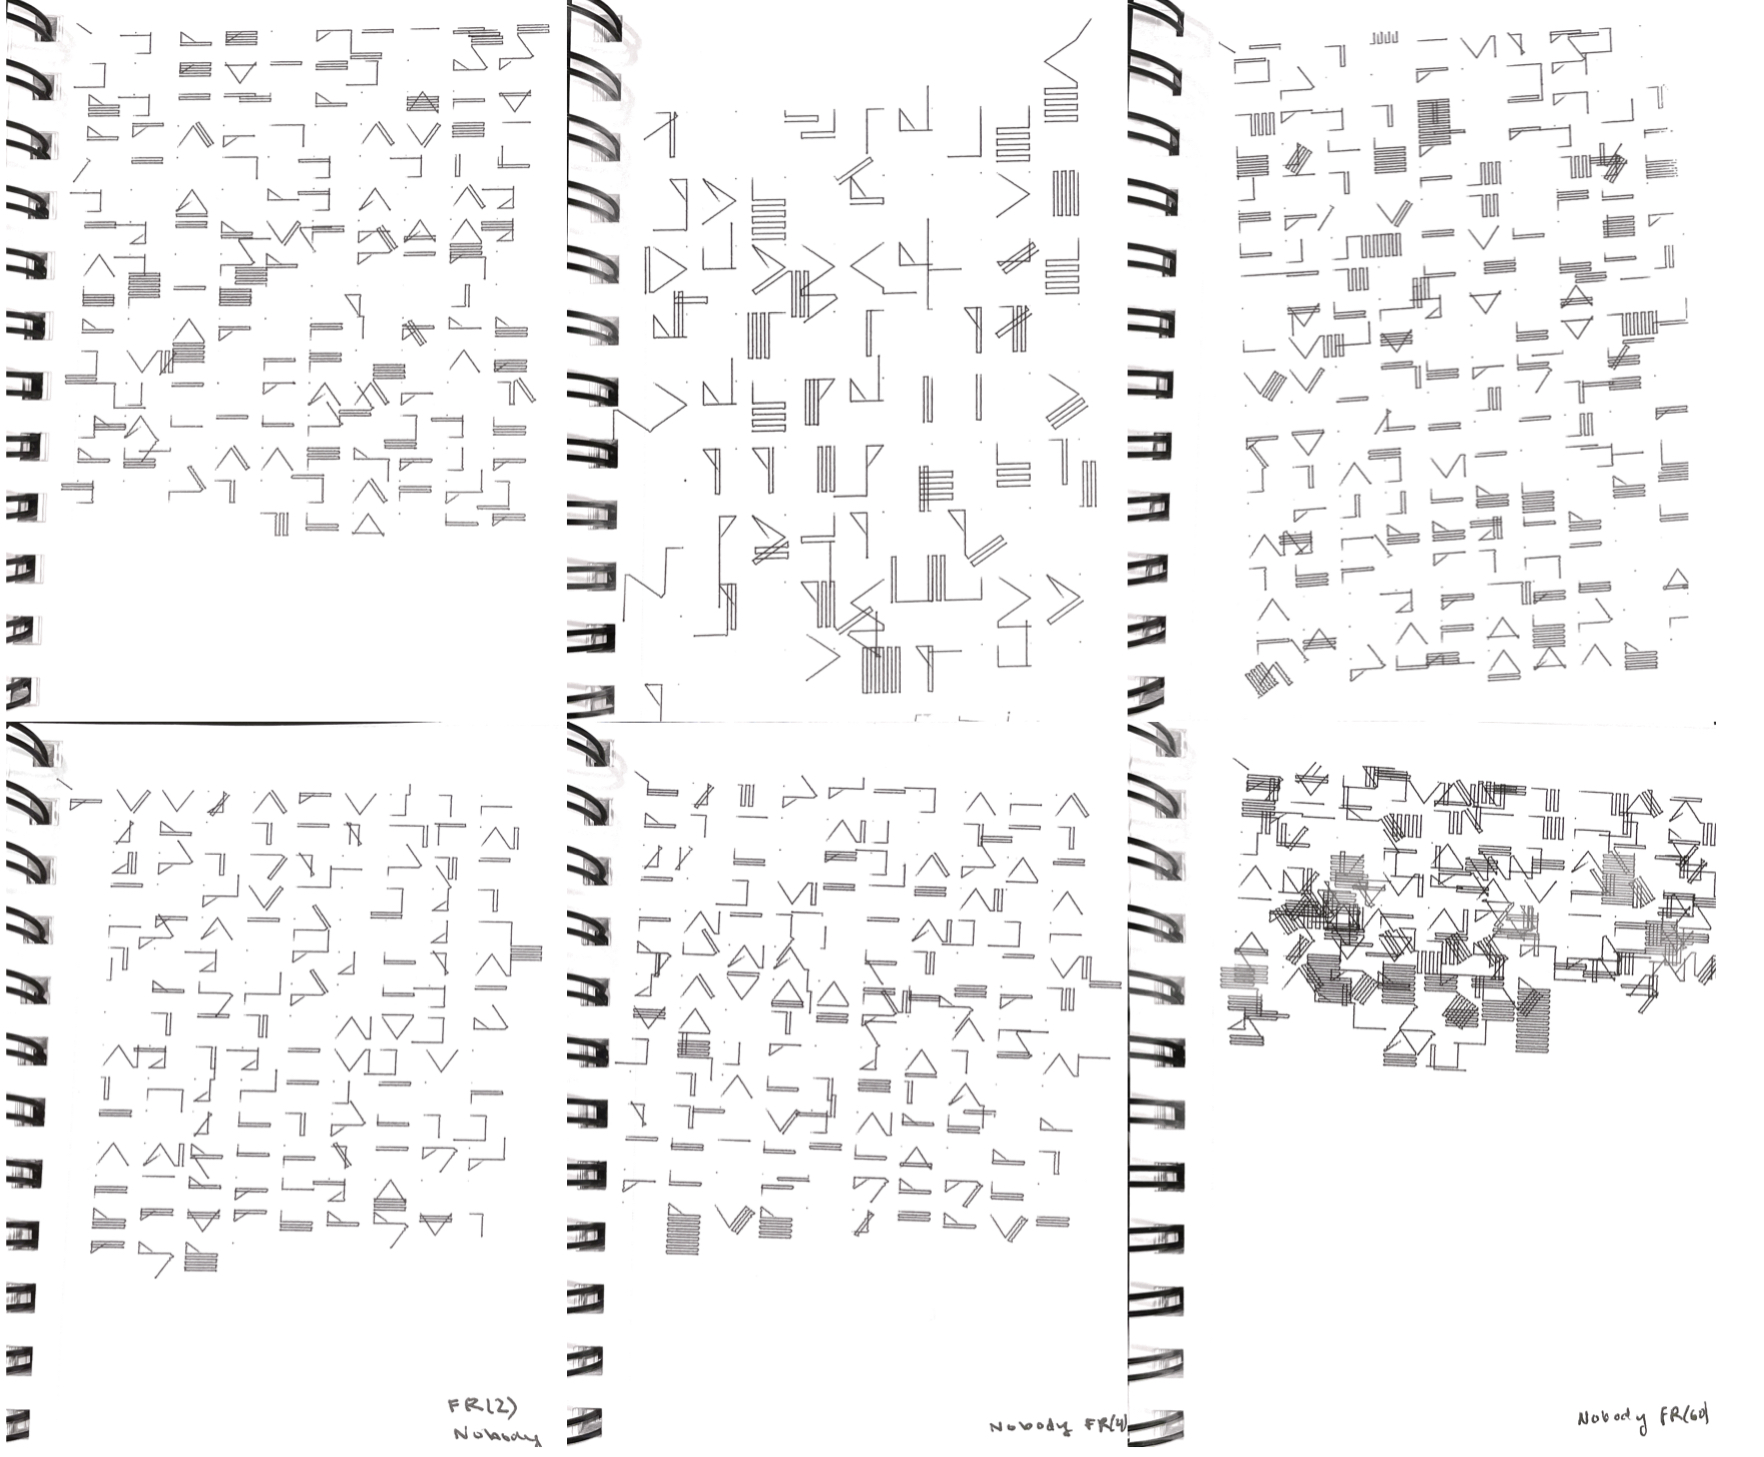 FR(2)
Nobody
Nobody FR(4)
Nobody FR(60)